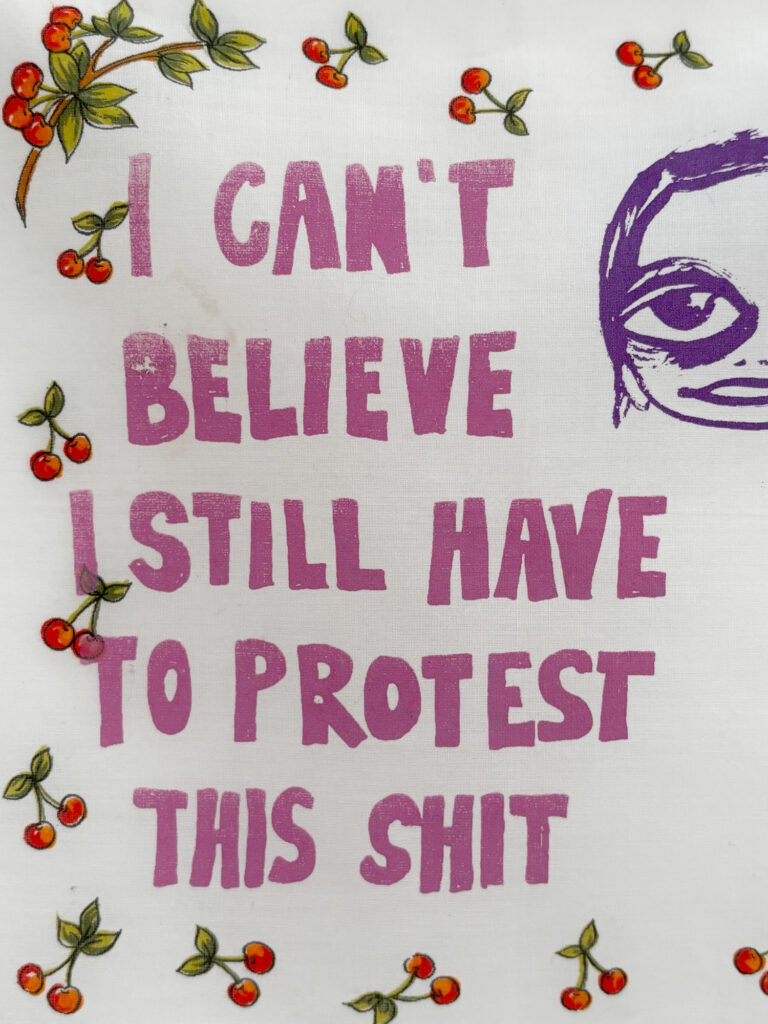 I CAN'T
BELIEVE
I STILL HAVE
TO PROTEST
THIS SHIT